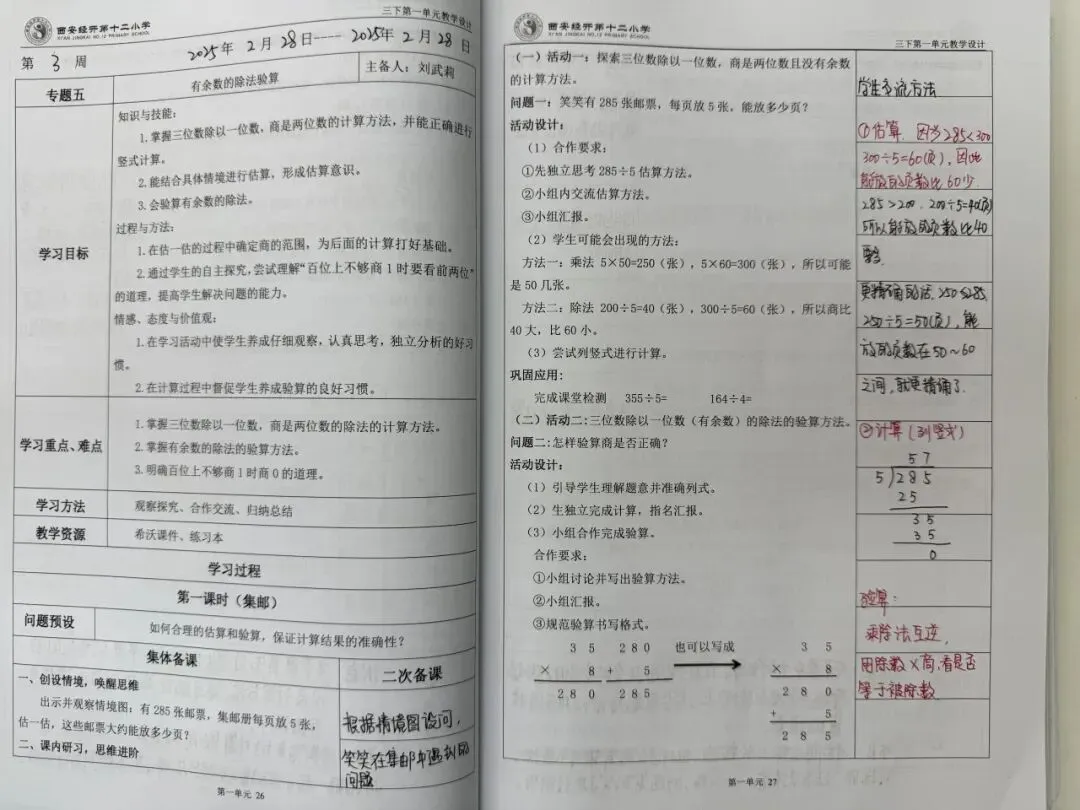 西安经开第十二小学
XI'AN JINGKAI NO.12 PRIMARY SCHOOL
三下第一单元教学设计
第 3 周
2025年 2月 28日---- 2025年 2月 28日
专题五
有余数的除法验算
主备人：刘武莉
学习目标
知识与技能：
1.掌握三位数除以一位数，商是两位数的计算方法，并能正确进行
竖式计算。
2.能结合具体情境进行估算，形成估算意识。
3.会验算有余数的除法。
过程与方法：
1.在估一估的过程中确定商的范围，为后面的计算打好基础。
2.通过学生的自主探究，尝试理解“百位上不够商1时要看前两位”
的道理，提高学生解决问题的能力。
情感、态度与价值观：
1.在学习活动中使学生养成仔细观察，认真思考，独立分析的好习
惯。
2.在计算过程中督促学生养成验算的良好习惯。
学习重点、难点
1.掌握三位数除以一位数，商是两位数的除法的计算方法。
2.掌握有余数的除法的验算方法。
3.明确百位上不够商1时商0的道理。
学习方法
观察探究、合作交流、归纳总结
教学资源
希沃课件、练习本
学习过程
第一课时（集邮）
问题预设
如何合理的估算和验算，保证计算结果的准确性？
集体备课
二次备课
一、创设情境，唤醒思维
出示并观察情境图：有285张邮票，集邮册每页放5张，
估一估，这些邮票大约能放多少页？
二、课内研习，思维进阶
根据情境图设问，
笑笑在集邮中遇到的
问题
第一单元 26
西安经开第十二小学
XI'AN JINGKAI NO.12 PRIMARY SCHOOL
三下第一单元教学设计
（一）活动一：探索三位数除以一位数，商是两位数且没有余数
的计算方法。
问题一：笑笑有285张邮票，每页放5张，能放多少页？
活动设计：
（1）合作要求：
①先独立思考285÷5估算方法。
②小组内交流估算方法。
③小组汇报。
（2）学生可能会出现的方法：
方法一：乘法 5×50=250（张），5×60=300（张），所以可能
是50几张。
方法二：除法 200÷5=40（张），300÷5=60（张），所以商比
40大，比60小。
（3）尝试列竖式进行计算。
巩固应用：
完成课堂检测 355÷5= 164÷4=
（二）活动二：三位数除以一位数（有余数）的除法的验算方法。
问题二：怎样验算商是否正确？
活动设计：
（1）引导学生理解题意并准确列式。
（2）生独立完成计算，指名汇报。
（3）小组合作完成验算。
合作要求：
①小组讨论并写出验算方法。
②小组汇报。
③规范验算书写格式。
3 5 2 8 0 也可以写成 3 5
× 8 + 5 × 8
2 8 0 2 8 5 2 8 0
+ 5
2 8 5
学生交流方法
①估算，因为285<300
300÷5=60(页)，因此
能放的页数比60少.
285>200，200÷5=40(页)
所以能放的页数比40
更精确的估法，250<285
250÷5=50(页)，能
放的页数在50~60
之间，就更精确了.
②计算（列竖式）
5 7
5 2 8 5
2 5
3 5
3 5
0
验算：
乘除法互逆，
用除数×商，看是否
等于被除数
第一单元 27